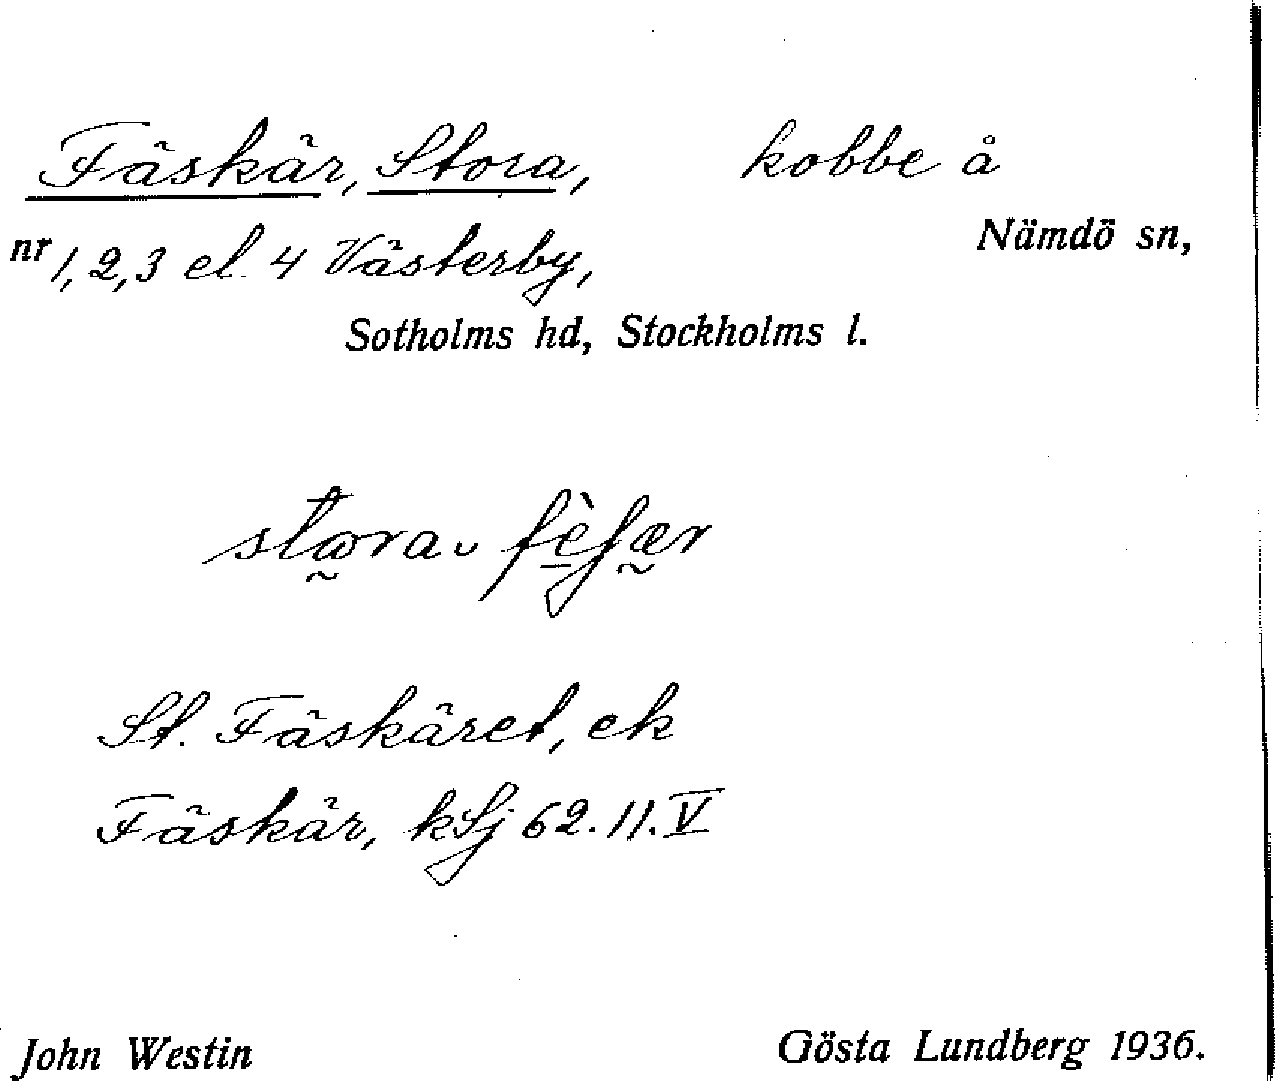 Fäskär, Stora, kobbe å
nr 1, 2, 3 el. 4 Västerby, Nämdö sn,
Sotholms hd, Stockholms l.
St. Fäskäret, ek
Fäskär, kSj 62. 11. V
John Westin Gösta Lundberg 1936.